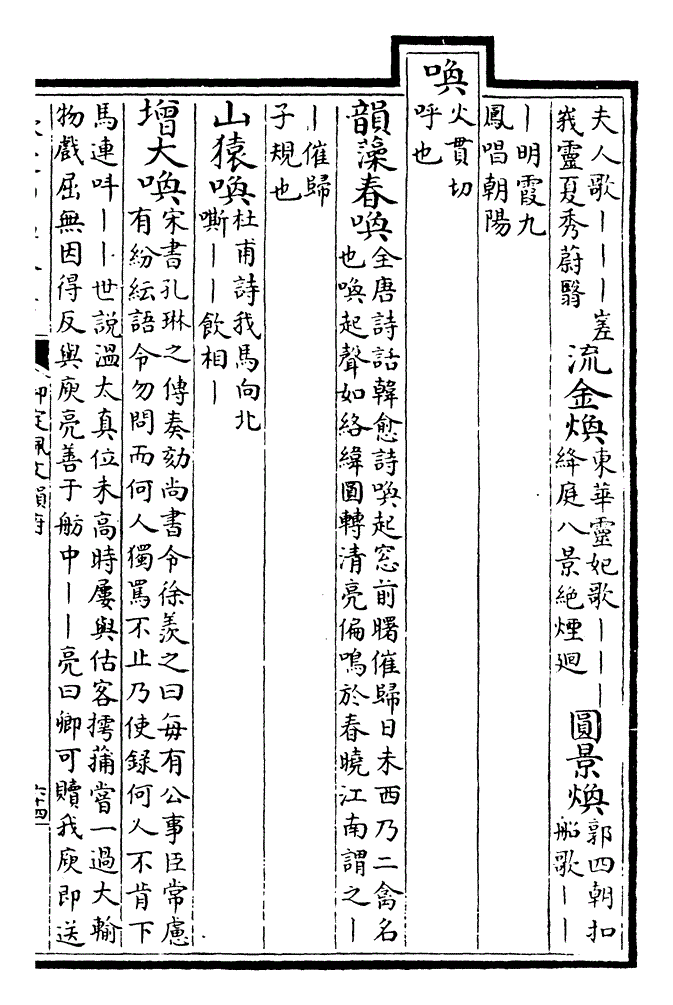 夫人歌丨丨丨嵳
峩靈夏秀蔚翳
流金煥
東華靈妃歌丨丨丨
絳庭八景絶煙廻
圓景煥
郭四朝扣
船歌丨丨
丨明霞九
鳳唱朝陽
喚
火貫切
呼也
韻藻春喚
全唐詩話韓愈詩喚起窓前曙催歸日未西乃二禽名
也喚起聲如絡緯圓轉清亮偏鳴於春曉江南謂之丨
丨催歸
子規也
山猿喚
杜甫詩我馬向北
嘶丨丨飲相丨
增大喚
宋書孔琳之傳奏劾尚書令徐羨之曰每有公事臣常慮
有紛紜語令勿問而何人獨罵不止乃使録何人不肯下
馬連呌丨丨世說溫太真位未高時屢與估客摴蒱嘗一過大輸
物戲屈無因得反與庾亮善于舫中丨丨亮曰卿可贖我庾即送